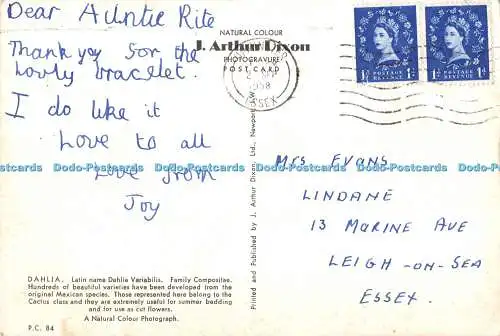 Dear Auntie Rite
Thank you for the
lovly bracelet.
I do like it
Love to all
Love from
Joy
NATURAL COLOUR
J. Arthur Dixon
PHOTOGRAVURE
POST CARD
1958
ESSEX
POSTAGE
REVENUE
1D
POSTAGE
REVENUE
1D
Mrs Evans
LINDANE
13 MARINE AVE
LEIGH-ON-SEA
ESSEX.
Printed and Published by J. Arthur Dixon, Ltd., Newport
DAHLIA. Latin name Dahlia Variabilis. Family Compositae.
Hundreds of beautiful varieties have been developed from the
original Mexican species. Those represented here belong to the
Cactus class and they are extremely useful for summer bedding
and for use as cut flowers.
A Natural Colour Photograph.
P.C. 84
Dodo-Postcards Dodo-Postcards Dodo-Postcards Dodo-Postcards